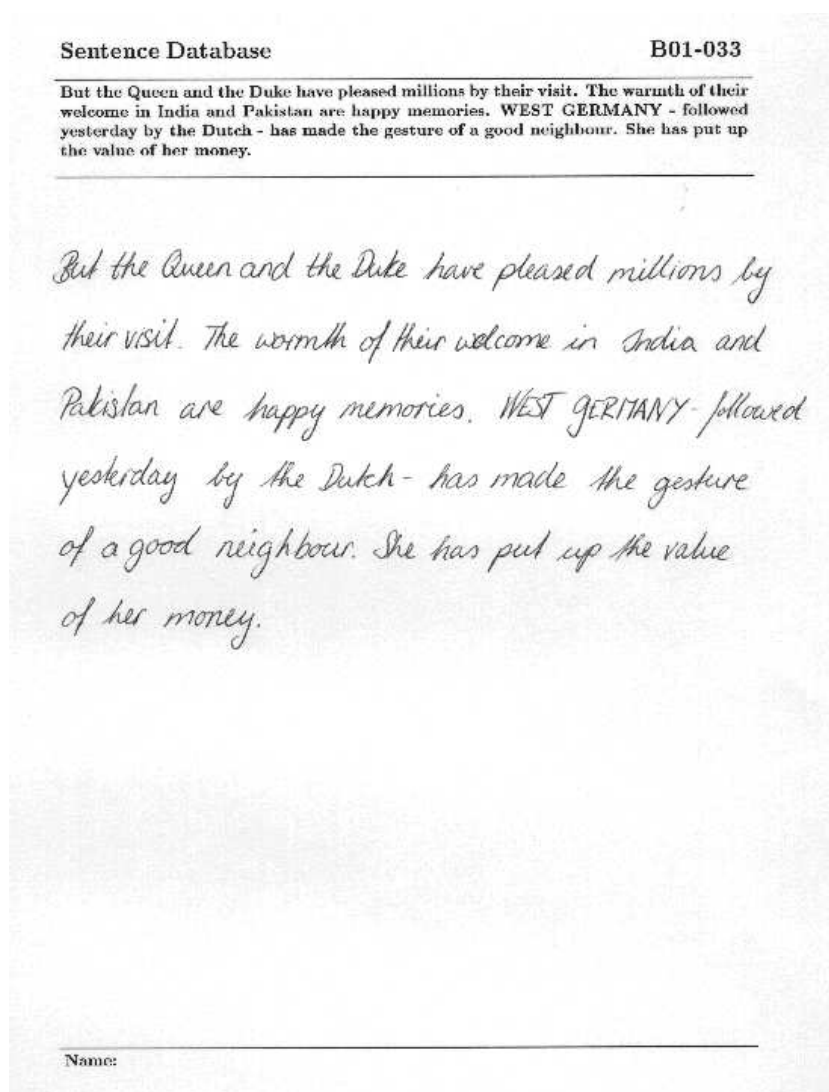 Sentence Database B01-033
But the Queen and the Duke have pleased millions by their visit. The warmth of their
welcome in India and Pakistan are happy memories. WEST GERMANY - followed
yesterday by the Dutch - has made the gesture of a good neighbour. She has put up
the value of her money.
But the Queen and the Duke have pleased millions by
their visit. The warmth of their welcome in India and
Pakistan are happy memories. WEST GERMANY - followed
yesterday by the Dutch - has made the gesture
of a good neighbour. She has put up the value
of her money.
Name: